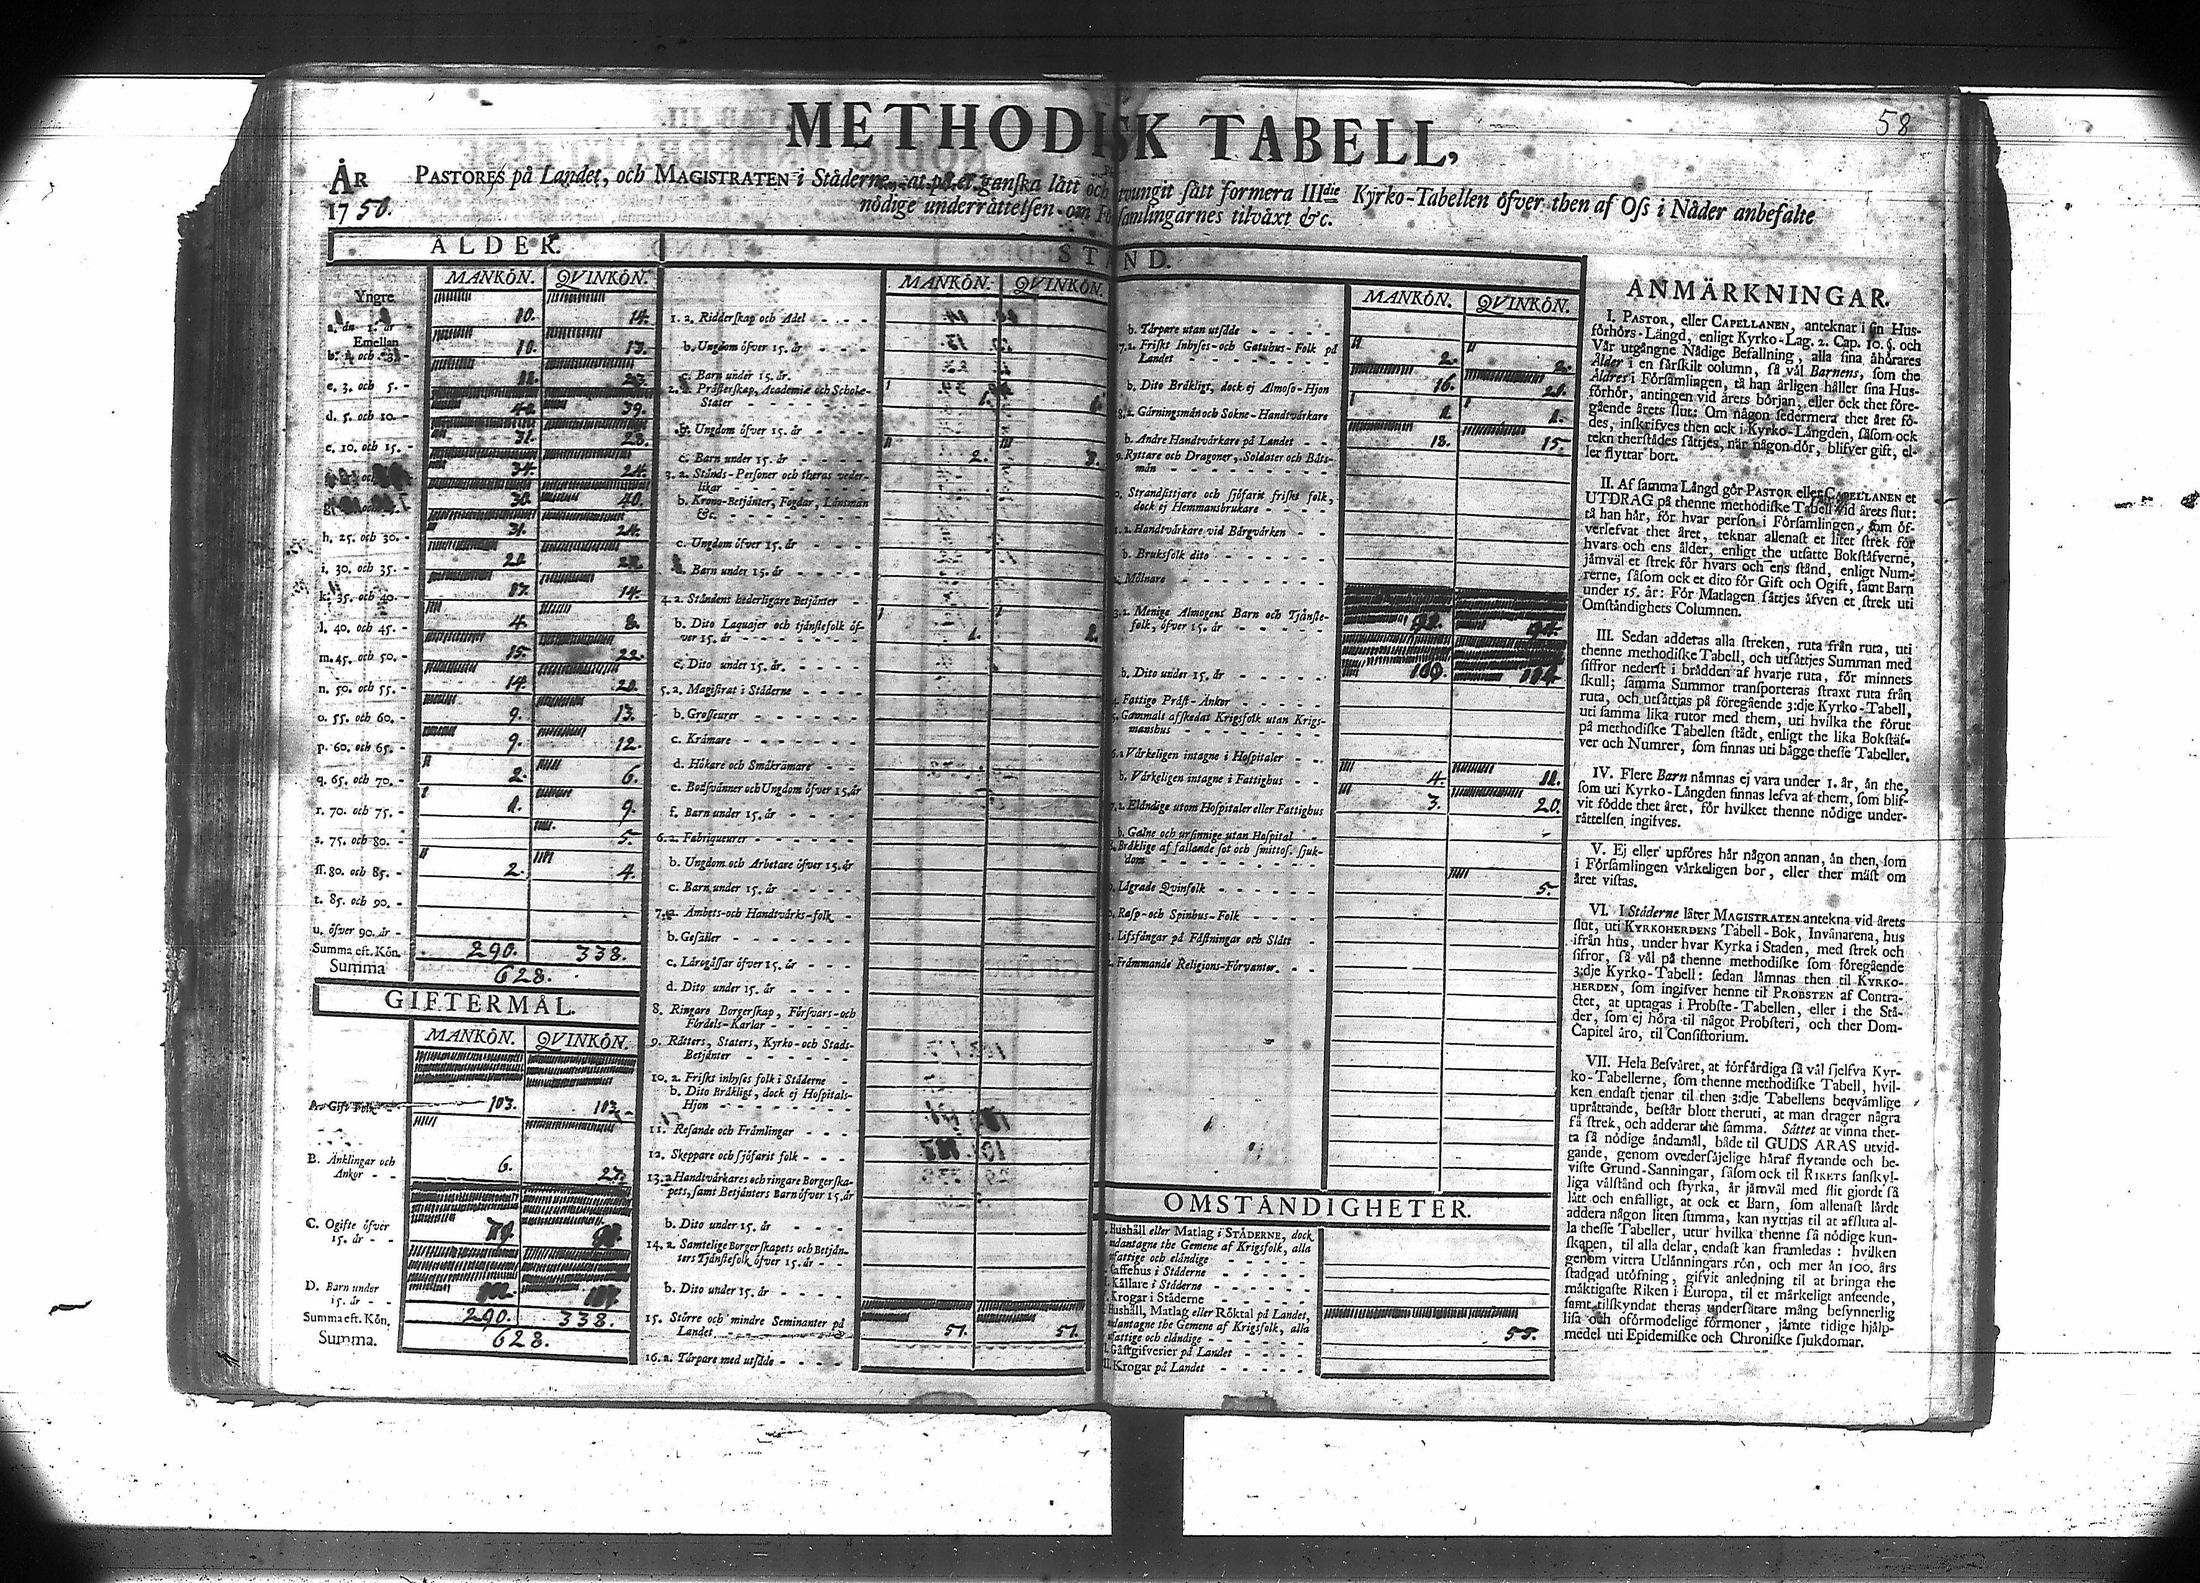 58
METHODISK TABELL,
ÅR 1750.
PASTORES på Landet, och MAGISTRATEN i Städerne, at på et ganska lätt och otvungit sätt formera IIIdie Kyrko-Tabellen öfver then af Oss i Nåder anbefalte
nödige underrättelsen om Församlingarnes tilväxt &c.
ÅLDER.
MANKÖN. QVINKÖN.
Yngre
a. än 1. år 10. 14.
Emellan
b. 1 och 3. 10. 13.
c. 3. och 5. - 23.
d. 5. och 10. - 40. 39.
e. 10. och 15. - 31. 28.
34. 24.
30. 40.
h. 25. och 30. - 31. 24.
i. 30. och 35. -
k. 35. och 40. - 17. 14.
l. 40. och 45. - 4. 8.
m. 45. och 50. - 15. 22.
n. 50. och 55. - 14. 20.
o. 55. och 60. - 9. 13.
p. 60. och 65. - 9. 12.
q. 65. och 70. - 2. 6.
r. 70. och 75. - 1. 9.
s. 75. och 80. - 5.
ff. 80. och 85. - 2. 4.
t. 85. och 90. -
u. öfver 90. år -
Summa eft. Kön. 290. 338.
Summa 628.
GIFTERMÅL.
MANKÖN. QVINKÖN.
A. Gift Folk 103. 103.
B. Änklingar och
Änkor - - 6. 27.
C. Ogifte öfver
15. år - -
D. Barn under
15. år - -
Summa eft. Kön, 290. 338.
Summa. 628.
STÅND.
MANKÖN. QVINKÖN.
1. a. Ridderskap och Adel - - - -
b. Ungdom öfver 15. år - - -
c. Barn under 15. år.
2. a. Prästerskap, Academiæ och Schole-
Stater - - - - - - 1.
b. Ungdom öfver 15. år - - -
c. Barn under 15. år - - - 2. 3.
3. a. Stånds-Personer och theras veder-
likar - - - - - -
b. Krono-Betjänter, Fogdar, Länsmän
&c. - - - - - - -
c. Ungdom öfver 15. år - - - -
d. Barn under 15. år - - - -
4. a. Ståndens hederligare Betjänter -
b. Dito Laquajer och tjänstefolk öf-
ver 15. år - - - - - - 1. 2.
c. Dito under 15. år. - - - -
5. a. Magistrat i Städerne - - - -
b. Grosseurer - - - - - -
c. Krämare - - - - - -
d. Hökare och Småkrämare - - -
e. Bodsvänner och Ungdom öfver 15. år
f. Barn under 15. år - - - -
6. a. Fabriqueurer - - - - -
b. Ungdom och Arbetare öfver 15. år
c. Barn under 15. år - - - -
7. a. Ämbets-och Handtvärks-folk -
b. Gesäller - - - - - -
c. Lärogåssar öfver 15. år - - -
d. Dito under 15. år - - - -
8. Ringare Borgerskap, Försvars-och
Fördels-Karlar - - - - -
9. Rätters, Staters, Kyrko-och Stads-
Betjänter - - - - - -
10. a. Friskt inhyses folk i Städerne -
b. Dito Bräkligt, dock ej Hospitals-
Hjon - - - - - - -
11. Resande och Främlingar - - -
12. Skeppare och sjöfarit folk - - -
13. a Handtvärkares och ringare Borgerska-
pets, samt Betjänters Barn öfver 15. år
b. Dito under 15. år - - -
14. a. Samtelige Borgerskapets och Betjän-
ters Tjänstefolk öfver 15. år - -
b. Dito under 15. år - - - -
15. Större och mindre Seminanter på
Landet - - 51. 51.
16. a. Tårpare med utsäde - - - -
MANKÖN. QVINKÖN.
b. Tårpare utan utsäde - - - - -
7. a. Friskt Inhyses-och Gatuhus-Folk på
Landet - - - - - - 2. 2.
b. Dito Bräkligt, dock ej Almoso-Hjon 16. 20.
8. a. Gärningsmän och Sokne-Handtvärkare 1. 1.
b. Andre Handtvärkare på Landet - - 18. 15.
9. Ryttare och Dragoner, Soldater och Båts-
män - - - - - - -
0. Strandsittjare och sjöfarit friskt folk,
dock ej Hemmansbrukare - - - -
1. a. Handtvärkare vid Bärgvärken - -
b. Bruksfolk dito - - - - -
Mölnare - - - - - - -
3. a. Menige Almogens Barn och Tjänste-
folk, öfver 15. år - - - - 92. 94.
b. Dito under 15. år - - - - 100. 114.
4. Fattige Präst-Änkor - - - -
5. Gammalt afskedat Krigsfolk utan Krigs-
manshus - - - - - -
6. a Värkeligen intagne i Hospitaler - -
b. Värkeligen intagne i Fattighus - - 4. 11.
7. a. Eländige utom Hospitaler eller Fattighus 3. 20.
b. Galne och ursinnige utan Hospital -
8. Bräklige af fallande sot och smittos. sjuk-
dom - - - - - - -
9. Lägrade Qvinfolk - - - - - 5.
0. Rasp-och Spinhus-Folk - - - -
1. Lifsfångar på Fästningar och Slått -
2. Främmande Religions-Förvanter. - -
OMSTÄNDIGHETER.
Hushåll eller Matlag i STÄDERNE, dock
undantagne the Gemene af Krigsfolk, alla
fattige och eländige - - - - -
Caffehus i Städerne - - - -
Källare i Städerne - - - -
Krogar i Städerne - - - -
Hushåll, Matlag eller Röktal på Landet,
undantagne the Gemene af Krigsfolk, alla
fattige och eländige - - - - 55.
Gästgifverier på Landet - - - -
Krogar på Landet - - - -
ANMÄRKNINGAR.
I. PASTOR, eller CAPELLANEN, anteknar i sin Hus-
förhörs-Längd, enligt Kyrko-Lag. 2. Cap. 10. §. och
Vår utgångne Nådige Befallning, alla sina åhörares
Ålder i en särskilt column, så väl Barnens, som the
Äldres i Församlingen, tå han årligen håller sina Hus-
förhör, antingen vid årets början, eller ock thet före-
gående årets slut: Om någon sedermera thet året fö-
des, inskrifves then ock i Kyrko-Längden, såsom ock
tekn therstädes sättjes, när någon dör, blifver gift, el-
ler flyttar bort.
II. Af samma Längd gör PASTOR eller CAPELLANEN et
UTDRAG på thenne methodiske Tabell vid årets slut:
tå han här, för hvar person i Församlingen, som öf-
verlefvat thet året, teknar allenast et litet strek för
hvars och ens ålder, enligt the utsatte Bokstäfverne,
jämväl et strek för hvars och ens stånd, enligt Num-
rerne, såsom ock et dito för Gift och Ogift, samt Barn
under 15. år: För Matlagen sättjes äfven et strek uti
Omständighets Columnen.
III. Sedan adderas alla streken, ruta från ruta, uti
thenne methodiske Tabell, och utsättjes Summan med
siffror nederst i brädden af hvarje ruta, för minnets
skull; samma Summor transporteras straxt ruta från
ruta, och utsättjas på föregående 3:dje Kyrko-Tabell,
uti samma lika rutor med them, uti hvilka the förut
på methodiske Tabellen städt, enligt the lika Bokstäf-
ver och Numrer, som finnas uti bägge thesse Tabeller.
IV. Flere Barn nämnas ej vara under 1. år, än the,
som uti Kyrko-Längden finnas lefva af them, som blif-
vit födde thet året, för hvilket thenne nödige under-
rättelsen ingifves.
V. Ej eller upföres här någon annan, än then, som
i Församlingen värkeligen bor, eller ther mäst om
året vistas.
VI. I Städerne låter MAGISTRATEN antekna vid årets
slut, uti KYRKOHERDENS Tabell-Bok, Invånarena, hus
ifrån hus, under hvar Kyrka i Staden, med strek och
sifror, så väl på thenne methodiske som föregående
3:dje Kyrko-Tabell: sedan lämnas then til KYRKO-
HERDEN, som ingifver henne til PROBSTEN af Contra-
ctet, at uptagas i Probste-Tabellen, eller i the Stä-
der, som ej höra til något Probsteri, och ther Dom-
Capitel äro, til Consistorium.
VII. Hela Besväret, at förfärdiga så väl sjelfva Kyr-
ko-Tabellerne, som thenne methodiske Tabell, hvil-
ken endast tjenar til then 3:dje Tabellens beqvämlige
uprättande, består blott theruti, at man drager några
få strek, och adderar the samma. Sättet at vinna thet-
ta så nödige ändamål, både til GUDS ÄRAS utvid-
gande, genom ovedersäjelige häraf flytande och be-
viste Grund-Sanningar, såsom ock til RIKETS sanskyl-
liga välstånd och styrka, är jämväl med flit gjordt så
lätt och enfalligt, at ock et Barn, som allenast lärdt
addera någon liten summa, kan nyttjas til at afsluta al-
la thesse Tabeller, utur hvilka thenne så nödige kun-
skapen, til alla delar, endast kan framledas: hvilken
genom vittra Utlänningars rön, och mer än 100. års
stadgad utöfning, gifvit anledning til at bringa the
mäktigaste Riken i Europa, til et märkeligt anseende,
samt tilskyndat theras undersåtare mång besynnerlig
lisa och oförmodelige förmoner, jämte tidige hjälp-
medel uti Epidemiske och Chroniske sjukdomar.